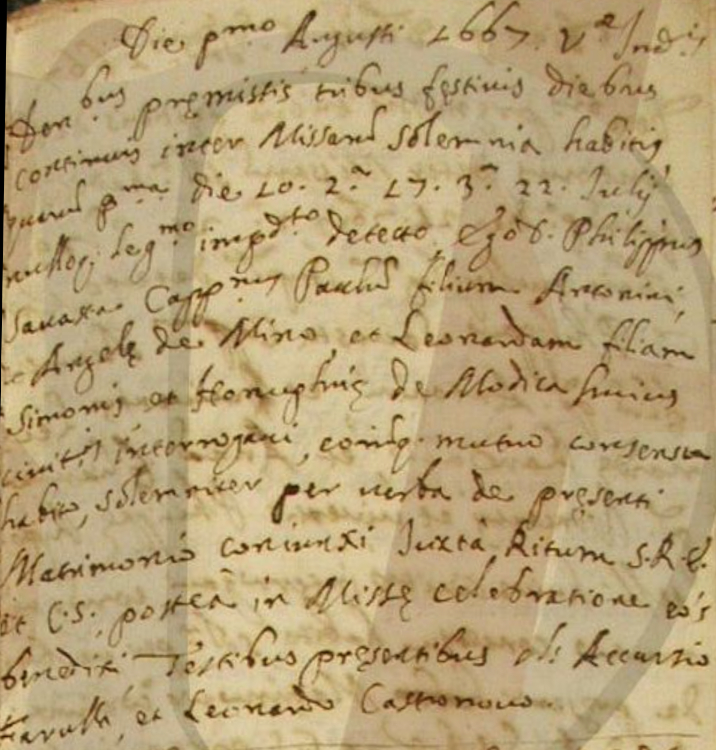 Die p.mo Augusti 1667. V.æ Ind.is
Den.bus pręmissis tribus festiuis diebus
continuis inter Missarũ solemnia habitis
quarũ p.ma die 10. 2.a 17. 3.a 22. Julij
nulloq; leg.mo imp.dto detecto, Ego S. Philippus
Capp.nus Paulũ filium Antonini,
et Angelę de Mino, et Leonardam filiam
Simonis et Honuphrię de Modica huius
ciuit.is interrogaui, eorũq. mutuo consensu
habito, solemniter per uerba de pręsenti
Matrimonio coniunxi Juxta Ritum S.R.E.
et C.S. posteà in Missę celebratione eos
benedixi Testibus pręsentibus Accursio
et Leonardo Castronouo.